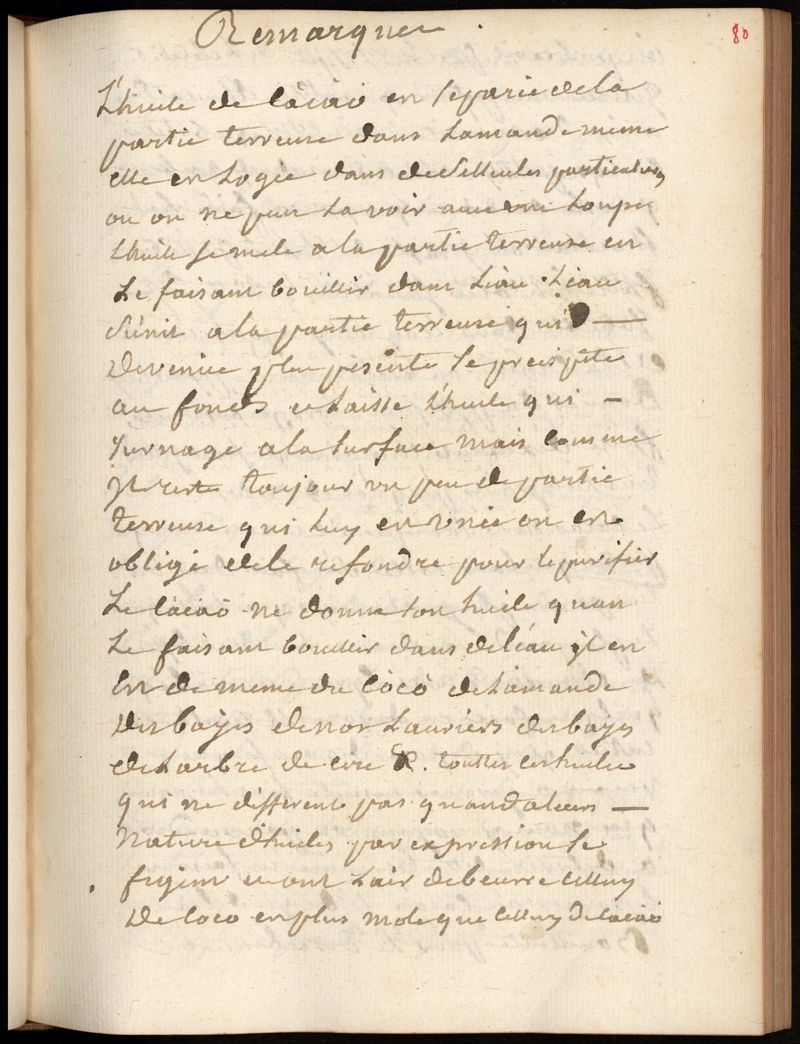 Remarques
80
L'huile de Càcaò est separée de la
partie terreuse dans Lamande meme
elle est Logée dans de Sellules particulieres
ou on ne peut La voir avec une Loupe
L'huile se mele a la partie terreuse en
Le faisant bouillir dans L'eau. L'eau
s'unit a la partie terreuse qui —
devenüe plus pesente se precipite
au fonds et Laisse L'huile qui —
surnage a la surface mais comme
Il reste toujour un peu de partie
terreuse qui Luy est unie on est
obligé de le refondre pour le purifier
Le Càcaò ne donne son huile quan
Le faisant bouillir dans de l'éau il en
Est de meme du Còcò de Lamande
des bayes de nos Lauriers des bayes
de Larbre de cire &c. touttes ces huiles
qui ne different pas quand a leurs —
Nature d'huiles par expression se
figent et ont Lair de beurre celluy
De Coco est plus mole que celluy de Càcaò